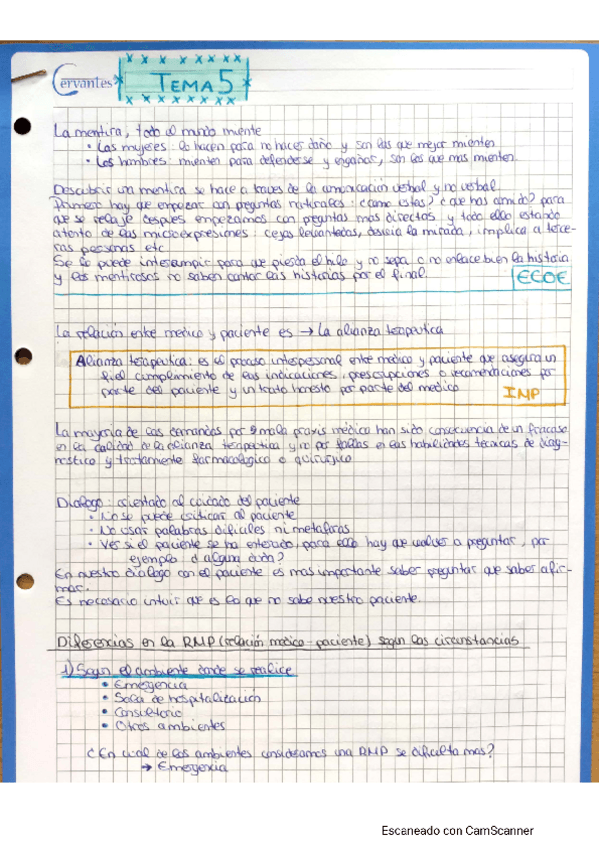 Cervantes
TEMA 5
La mentira, todo el mundo miente
• Las mujeres: lo hacen para no hacer daño y son las que mejor mienten
• Los hombres: mienten para defenderse y engañar, son los que mas mienten.
Descubrir una mentira se hace a traves de la comunicación verbal y no verbal.
Primero hay que empezar con preguntas naturales: ¿como estas? ¿que has comido? para
que se relaje despues empezamos con preguntas mas directas y todo ello estando
atento de las microexpresiones: cejas levantadas, desvia la mirada, implica a terce-
ras personas etc.
Se lo puede interrumpir para que pierda el hilo y no sepa o no enlace bien la historia
y los mentirosos no saben contar las historias por el final.
ECOE
La relación entre medico y paciente es → La alianza terapeutica
Alianza terapeutica: es el proceso interpersonal entre medico y paciente que asegura un
fiel cumplimiento de las indicaciones, prescripciones o recomendaciones por
parte del paciente y un trato honesto por parte del medico
IMP
La mayoria de las demandas por mala praxis médica han sido consecuencia de un fracaso
en la calidad de la alianza terapeutica y no por fallas en las habilidades técnicas de diag-
nóstico y tratamiento farmacológico o quirurgico
Dialogo: orientado al cuidado del paciente
• No se puede criticar al paciente
• No usar palabras dificiles ni metaforas
• Ver si el paciente se ha enterado, para ello hay que volver a preguntar, por
ejemplo ¿alguna duda?
En nuestro dialogo con el paciente es mas importante saber preguntar que saber afir-
mar.
Es necesario intuir que es lo que no sabe nuestro paciente.
Diferencias en la RMP (relación medico-paciente) según las circunstancias
1) Según el ambiente donde se realice
• Emergencia
• Sala de hospitalización
• Consultorio
• Otros ambientes
¿En cual de los ambientes consideramos una RMP se dificulta mas?
→ Emergencia
Escaneado con CamScanner